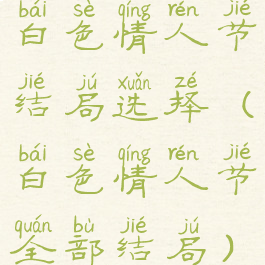 bái sè qíng rén jié
白色情人节
jié jú xuǎn zé
结局选择（
bái sè qíng rén jié
白色情人节
quán bù jié jú
全部结局）